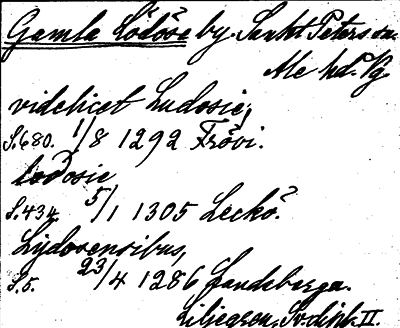 Gamla Lödöse by. Sankt Peters sn.
Ale hd. Vg.
videlicet Ludosie,
S. 680. 1/8 1292 Frövi.
lodosie
S. 434. 5/1 1305 Leckö.
Lydovensibus,
S. 5. 23/4 1286 Landeberga.
Liljegren, Sv. dipl. II.